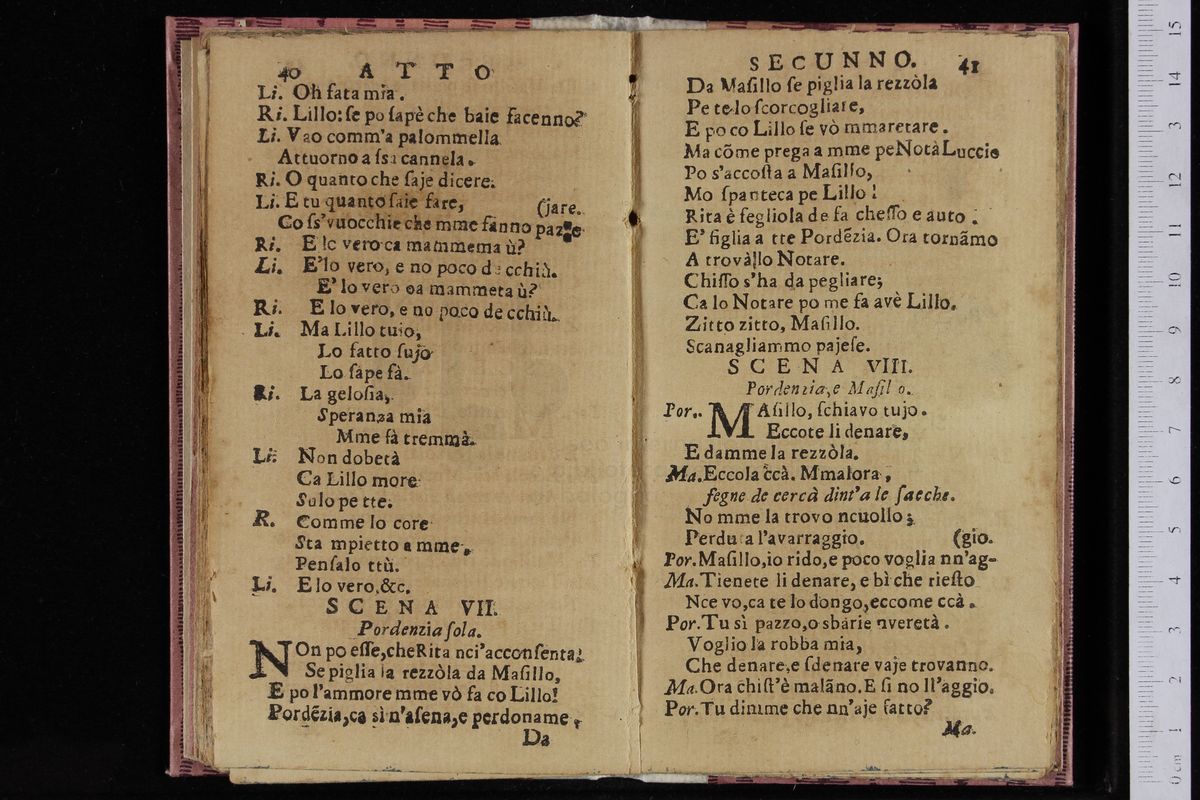 40 ATTO
Li. Oh fata mia.
Ri. Lillo: ſe po ſapè che baie facenno?
Li. Vao comm'a palommella
Attuorno a ſsa cannela.
Ri. O quanto che ſaje dicere.
Li. E tu quanto ſaie fare, (jare.
Co ſs'vuocchie che mme fanno pazze
Ri. E lo vero ca mammema ù?
Li. E' lo vero, e no poco de cchiù.
E' lo vero ca mammeta ù?
Ri. E lo vero, e no poco de cchiù.
Li. Ma Lillo tuio,
Lo fatto ſujo
Lo ſape fà.
Ri. La geloſia,
Speranza mia
Mme fà tremmà.
Li. Non dobetà
Ca Lillo more
Sulo pe tte.
R. Comme lo core
Sta mpietto a mme,
Penſalo ttù.
Li. E lo vero, &c.
SCENA VII.
Pordenzia ſola.
NOn po eſſe, che Rita nci'acconſenta;
Se piglia la rezzòla da Maſillo,
E po l'ammore mme vò fa co Lillo!
Pordẽzia, ca sì n'aſena, e perdoname,
Da
SECUNNO. 41
Da Maſillo ſe piglia la rezzòla
Pe te lo ſcorcogliare,
E po co Lillo ſe vò mmaretare.
Ma cõme prega a mme pe Notà Luccio
Po s'accoſta a Maſillo,
Mo ſpanteca pe Lillo!
Rita è fegliola de fa cheſſo e auto.
E' figlia a tte Pordẽzia. Ora tornãmo
A trovàllo Notare.
Chiſſo s'ha da pegliare;
Ca lo Notare po me fa avè Lillo.
Zitto zitto, Maſillo.
Scanagliammo pajeſe.
SCENA VIII.
Pordenzia, e Maſillo.
Por. MAſillo, ſchiavo tujo.
Eccote li denare,
E damme la rezzòla.
Ma. Eccola ccà. Mmalora,
fegne de cercà dint'a le ſacche.
No mme la trovo ncuollo;
Perduta l'avarraggio. (gio.
Por. Maſillo, io rido, e poco voglia nn'ag-
Ma. Tienete li denare, e bì che rieſto
Nce vo, ca te lo dongo, eccome ccà.
Por. Tu sì pazzo, o sbarie nveretà.
Voglio la robba mia,
Che denare, e ſdenare vaje trovanno.
Ma. Ora chiſt'è malãno. E ſi no ll'aggio.
Por. Tu dimme che nn'aje fatto?
Ma.
15
14
13
12
11
10
9
8
7
6
5
4
3
2
1
0 cm